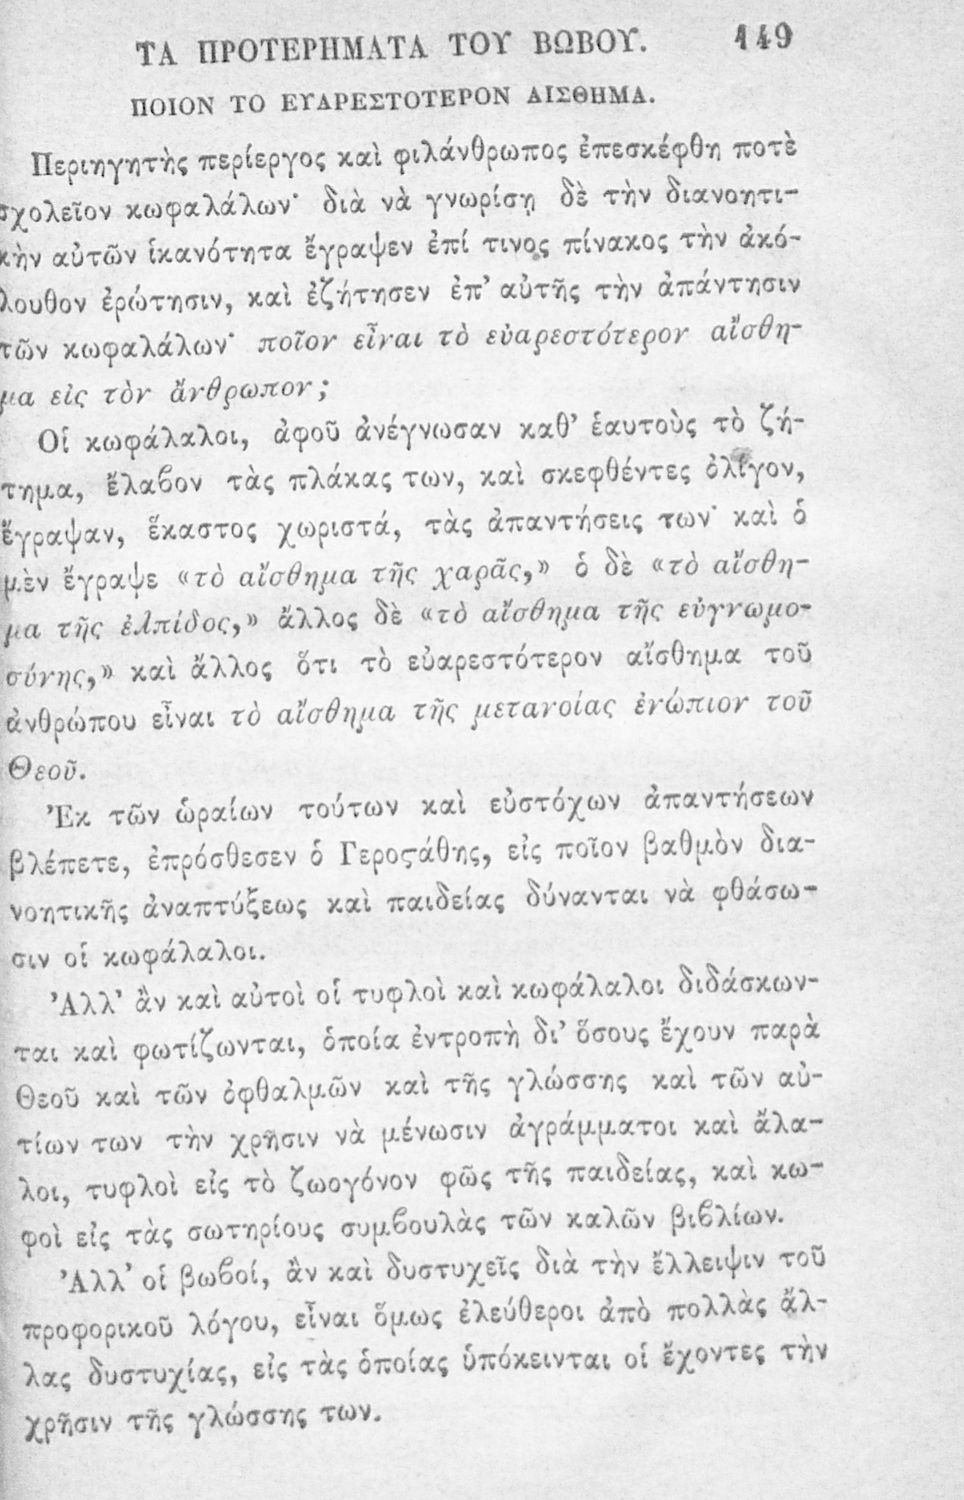 ΤΑ ΠΡΟΤΕΡΗΜΑΤΑ ΤΟΥ ΒΩΒΟΥ. 149
ΠΟΙΟΝ ΤΟ ΕΥΑΡΕΣΤΟΤΕΡΟΝ ΑΙΣΘΗΜΑ.
Περιηγητὴς περίεργος καὶ φιλάνθρωπος ἐπεσκέφθη ποτὲ
σχολεῖον κωφαλάλων· διὰ νὰ γνωρίσῃ δὲ τὴν διανοητι-
κὴν αὐτῶν ἱκανότητα ἔγραψεν ἐπί τινος πίνακος τὴν ἀκό-
λουθον ἐρώτησιν, καὶ ἐζήτησεν ἐπ' αὐτῆς τὴν ἀπάντησιν
τῶν κωφαλάλων· ποῖον εἶναι τὸ εὐαρεστότερον αἴσθη-
μα εἰς τὸν ἄνθρωπον;
Οἱ κωφάλαλοι, ἀφοῦ ἀνέγνωσαν καθ' ἑαυτοὺς τὸ ζή-
τημα, ἔλαϐον τὰς πλάκας των, καὶ σκεφθέντες ὀλίγον,
ἔγραψαν, ἕκαστος χωριστά, τὰς ἀπαντήσεις των· καὶ ὁ
μὲν ἔγραψε «τὸ αἴσθημα τῆς χαρᾶς,» ὁ δὲ «τὸ αἴσθη-
μα τῆς ἐλπίδος,» ἄλλος δὲ «τὸ αἴσθημα τῆς εὐγνωμο-
σύνης,» καὶ ἄλλος ὅτι τὸ εὐαρεστότερον αἴσθημα τοῦ
ἀνθρώπου εἶναι τὸ αἴσθημα τῆς μετανοίας ἐνώπιον τοῦ
Θεοῦ.
Ἐκ τῶν ὡραίων τούτων καὶ εὐστόχων ἀπαντήσεων
βλέπετε, ἐπρόσθεσεν ὁ Γεροϛάθης, εἰς ποῖον βαθμὸν δια-
νοητικῆς ἀναπτύξεως καὶ παιδείας δύνανται νὰ φθάσω-
σιν οἱ κωφάλαλοι.
Ἀλλ' ἂν καὶ αὐτοὶ οἱ τυφλοὶ καὶ κωφάλαλοι διδάσκων-
ται καὶ φωτίζωνται, ὁποία ἐντροπὴ δι' ὅσους ἔχουν παρὰ
Θεοῦ καὶ τῶν ὀφθαλμῶν καὶ τῆς γλώσσης καὶ τῶν αὐ-
τίων των τὴν χρῆσιν νὰ μένωσιν ἀγράμματοι καὶ ἄλα-
λοι, τυφλοὶ εἰς τὸ ζωογόνον φῶς τῆς παιδείας, καὶ κω-
φοὶ εἰς τὰς σωτηρίους συμϐουλὰς τῶν καλῶν βιϐλίων.
Ἀλλ' οἱ βωϐοί, ἂν καὶ δυστυχεῖς διὰ τὴν ἔλλειψιν τοῦ
προφορικοῦ λόγου, εἶναι ὅμως ἐλεύθεροι ἀπὸ πολλὰς ἄλ-
λας δυστυχίας, εἰς τὰς ὁποίας ὑπόκεινται οἱ ἔχοντες τὴν
χρῆσιν τῆς γλώσσης των.